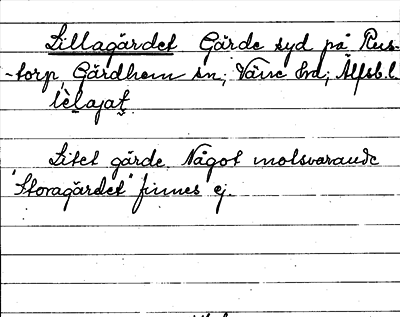 Lillagärdet Gärde syd på Rus-
-torp Gärdhem sn; Väne hd; Älfsb.l.
lèlajat
Litet gärde. Något motsvarande
"Storagärdet" finnes ej.